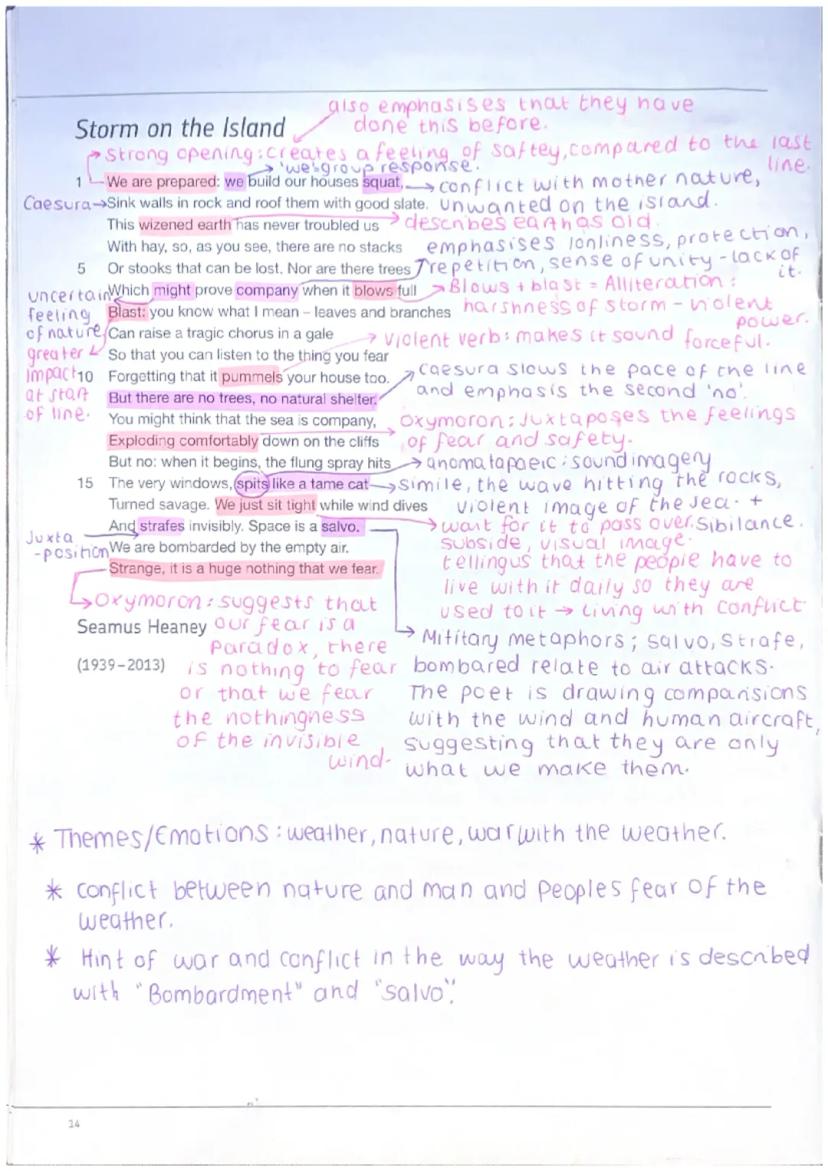 also emphasises that they have
done this before.
Storm on the Island
Strong opening: creates a feeling of saftey, compared to the last
line.
'we': group response.
1 We are prepared: we build our houses squat,
conflict with mother nature,
Caesura
Sink walls in rock and roof them with good slate.
unwanted on the island.
This wizened earth has never troubled us
describes earth as old.
With hay, so, as you see, there are no stacks
emphasises lonliness, protection,
5 Or stooks that can be lost. Nor are there trees
repetition, sense of unity - lack of
it.
uncertain
Which might prove company when it blows full
Blows + blast = Alliteration:
feeling
Blast: you know what I mean – leaves and branches
harshness of storm - violent
power.
of nature
Can raise a tragic chorus in a gale
violent verb: makes it sound forceful.
greater
So that you can listen to the thing you fear
impact
10 Forgetting that it pummels your house too.
caesura slows the pace of the line
at start
But there are no trees, no natural shelter.
and emphasis the second 'no'.
of line.
You might think that the sea is company,
Oxymoron: Juxtaposes the feelings
Exploding comfortably down on the cliffs
of fear and safety.
But no: when it begins, the flung spray hits
anomatapaeic: sound imagery
15 The very windows, spits like a tame cat
simile, the wave hitting the rocks,
Turned savage. We just sit tight while wind dives
violent image of the sea. +
And strafes invisibly. Space is a salvo.
wait for it to pass over. Sibilance.
Juxta
-position
We are bombarded by the empty air.
subside, visual image.
Strange, it is a huge nothing that we fear.
telling us that the people have to
live with it daily so they are
used to it → Living with conflict
Oxymoron: suggests that
Seamus Heaney
our fear is a
Paradox, there
(1939–2013)
is nothing to fear
or that we fear
the nothingness
of the invisible
wind.
Military metaphors; salvo, strafe,
bombared relate to air attacks.
The poet is drawing comparisions
with the wind and human aircraft,
suggesting that they are only
what we make them.
* Themes/Emotions: weather, nature, war with the weather.
* conflict between nature and man and Peoples fear of the
weather.
* Hint of war and conflict in the way the weather is described
with "Bombardment" and "salvo".
14